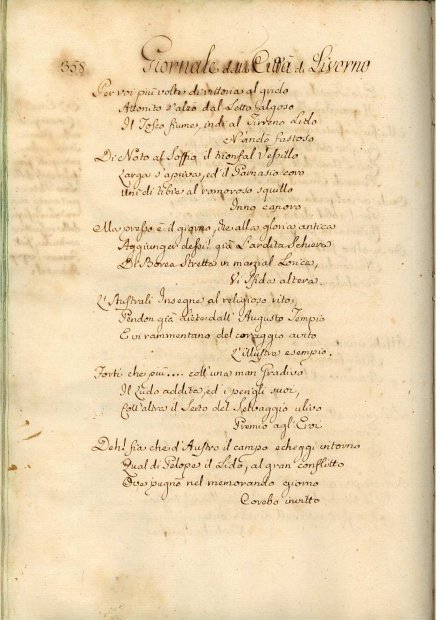 358 Giornale della Città di Livorno
Per voi più volte di vittoria al grido
Attonito s'alzò dal Letto algoso
Il Tosco fiume, indi al Tirreno Lido
N'andò fastoso
Di Noto al Soffio il trionfal Vessillo
Larga s'apriva, ed il Parnasio coro
Unì di tibie al romoroso squillo
Inno canoro
Ma presso è il giorno, che alla gloria antica
Aggiunger dessi: già l'ardita Schiera
Di Borea Stretta in marzial Lorica,
Vi Sfida altera.
L'Australi Insegne al religioso rito,
Pendon già liete dall'Augusto Tempio
E vi rammentano del coraggio avito
L'illustre esempio.
Forti che più.... coll'una man Gradivo
Il Ludo addita, ed i perigli suoi,
Coll'altra il Serto del Selvaggio ulivo
Premio agl'Eroi
Deh! fia che d'Austro il campo echeggi intorno
Qual di Pelope il Lido, al gran conflitto
Ove pugnò nel memorando giorno
Corebo invitto